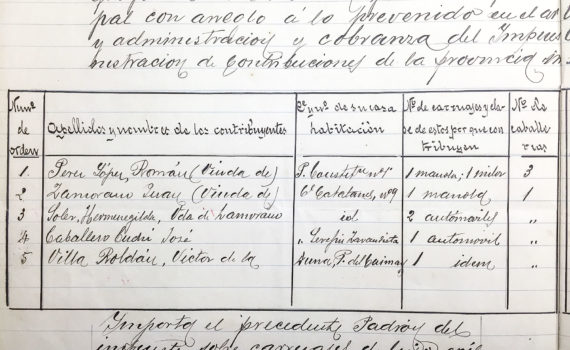 pal con areglo á lo prevenido en el ar
y administracion y cobranza del Impues
nistracion de Contribuciones de la provincia
Num.º de orden
Apellidos y nombres de los contribuyentes
C.e y n.º de su casa habitación
N.º de carruajes y clase de estos por que contribuyen
N.º de caballerias
1. Peru López, Román (Viuda de) P. Constit.on n.º 1 manola, 1 milor 3
2 Zamorano Juan (Viuda de) C.e Catalans, n.º 9 1 manola 1
3 Soler, Hermenegilda, Vda di Zamorano id 2 automoviles "
4 Caballero José " Serafin 1 automovil "
5 Villa Roldán, Victor de la P. del Caiman 1 idem "
Importa el precedente Padron del
impuesto sobre carruajes